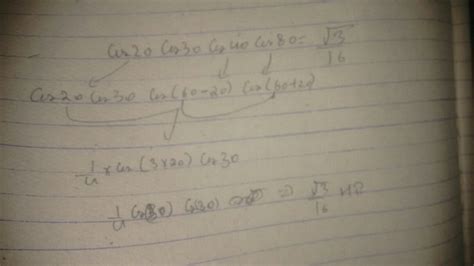 Cos20 Cos30 Cos40 Cos80 = √3/16
Cos20 Cos30 Cos(60-20) Cos(60+20)
1/4 × Cos(3×20) Cos30
1/4 Cos60 Cos30 = √3/16